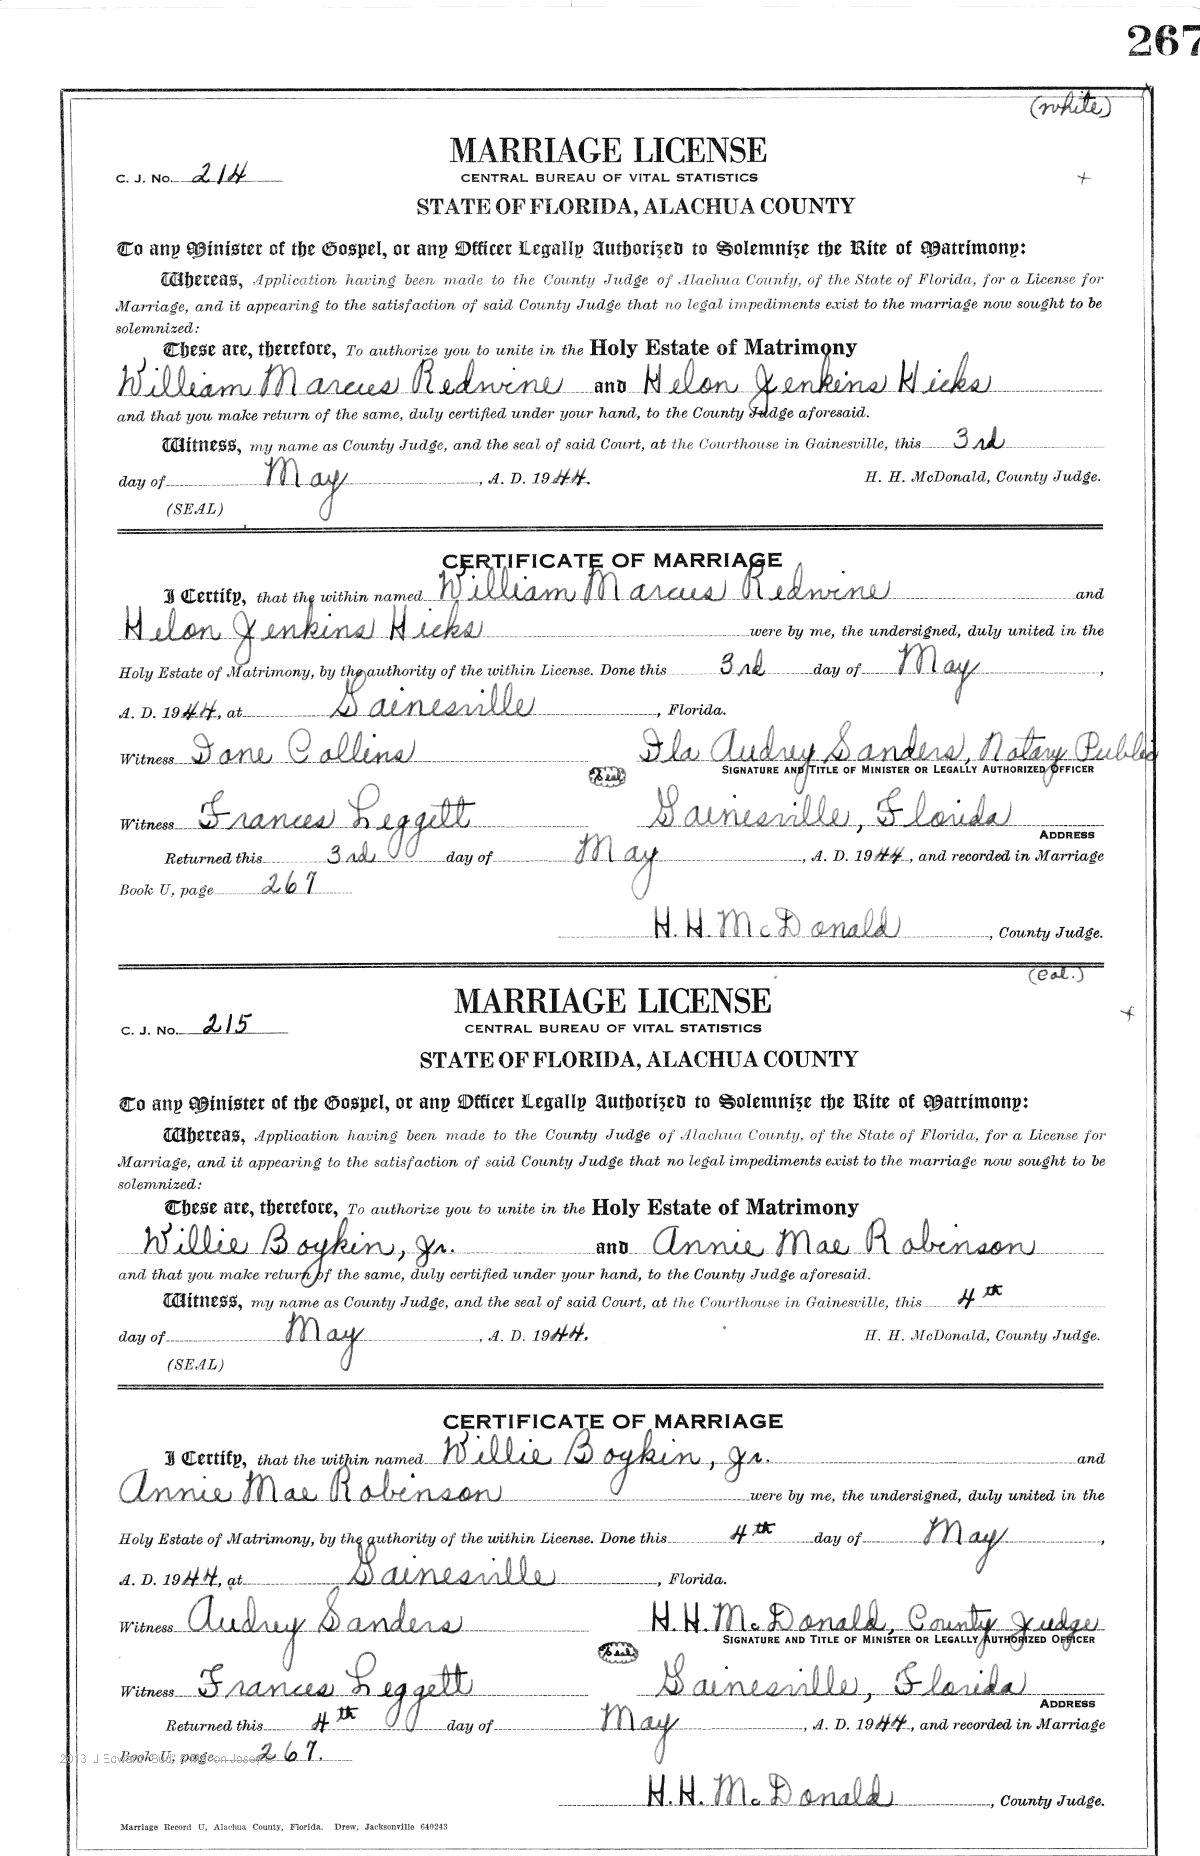 267
(white)
MARRIAGE LICENSE
C. J. No. 214
CENTRAL BUREAU OF VITAL STATISTICS
STATE OF FLORIDA, ALACHUA COUNTY
To any Minister of the Gospel, or any Officer Legally Authorized to Solemnize the Rite of Matrimony:
Whereas, Application having been made to the County Judge of Alachua County, of the State of Florida, for a License for
Marriage, and it appearing to the satisfaction of said County Judge that no legal impediments exist to the marriage now sought to be
solemnized:
These are, therefore, To authorize you to unite in the Holy Estate of Matrimony
William Marcus Redwine and Helon Jenkins Hicks
and that you make return of the same, duly certified under your hand, to the County Judge aforesaid.
Witness, my name as County Judge, and the seal of said Court, at the Courthouse in Gainesville, this 3rd
day of May, A. D. 1944. H. H. McDonald, County Judge.
(SEAL)
CERTIFICATE OF MARRIAGE
I Certify, that the within named William Marcus Redwine and
Helon Jenkins Hicks were by me, the undersigned, duly united in the
Holy Estate of Matrimony, by the authority of the within License. Done this 3rd day of May,
A. D. 1944, at Gainesville, Florida.
Witness Jane Collins Ila Audrey Sanders, Notary Public
(Seal) SIGNATURE AND TITLE OF MINISTER OR LEGALLY AUTHORIZED OFFICER
Witness Frances Leggett Gainesville, Florida
ADDRESS
Returned this 3rd day of May, A. D. 1944, and recorded in Marriage
Book U, page 267
H. H. McDonald, County Judge.
(Col.)
MARRIAGE LICENSE
C. J. No. 215
CENTRAL BUREAU OF VITAL STATISTICS
STATE OF FLORIDA, ALACHUA COUNTY
To any Minister of the Gospel, or any Officer Legally Authorized to Solemnize the Rite of Matrimony:
Whereas, Application having been made to the County Judge of Alachua County, of the State of Florida, for a License for
Marriage, and it appearing to the satisfaction of said County Judge that no legal impediments exist to the marriage now sought to be
solemnized:
These are, therefore, To authorize you to unite in the Holy Estate of Matrimony
Willie Boykin, Jr. and Annie Mae Robinson
and that you make return of the same, duly certified under your hand, to the County Judge aforesaid.
Witness, my name as County Judge, and the seal of said Court, at the Courthouse in Gainesville, this 4th
day of May, A. D. 1944. H. H. McDonald, County Judge.
(SEAL)
CERTIFICATE OF MARRIAGE
I Certify, that the within named Willie Boykin, Jr. and
Annie Mae Robinson were by me, the undersigned, duly united in the
Holy Estate of Matrimony, by the authority of the within License. Done this 4th day of May,
A. D. 1944, at Gainesville, Florida.
Witness Audrey Sanders H. H. McDonald, County Judge
(Seal) SIGNATURE AND TITLE OF MINISTER OR LEGALLY AUTHORIZED OFFICER
Witness Frances Leggett Gainesville, Florida
ADDRESS
Returned this 4th day of May, A. D. 1944, and recorded in Marriage
Book U, page 267.
H. H. McDonald, County Judge.
Marriage Record U, Alachua County, Florida. Drew, Jacksonville 640243